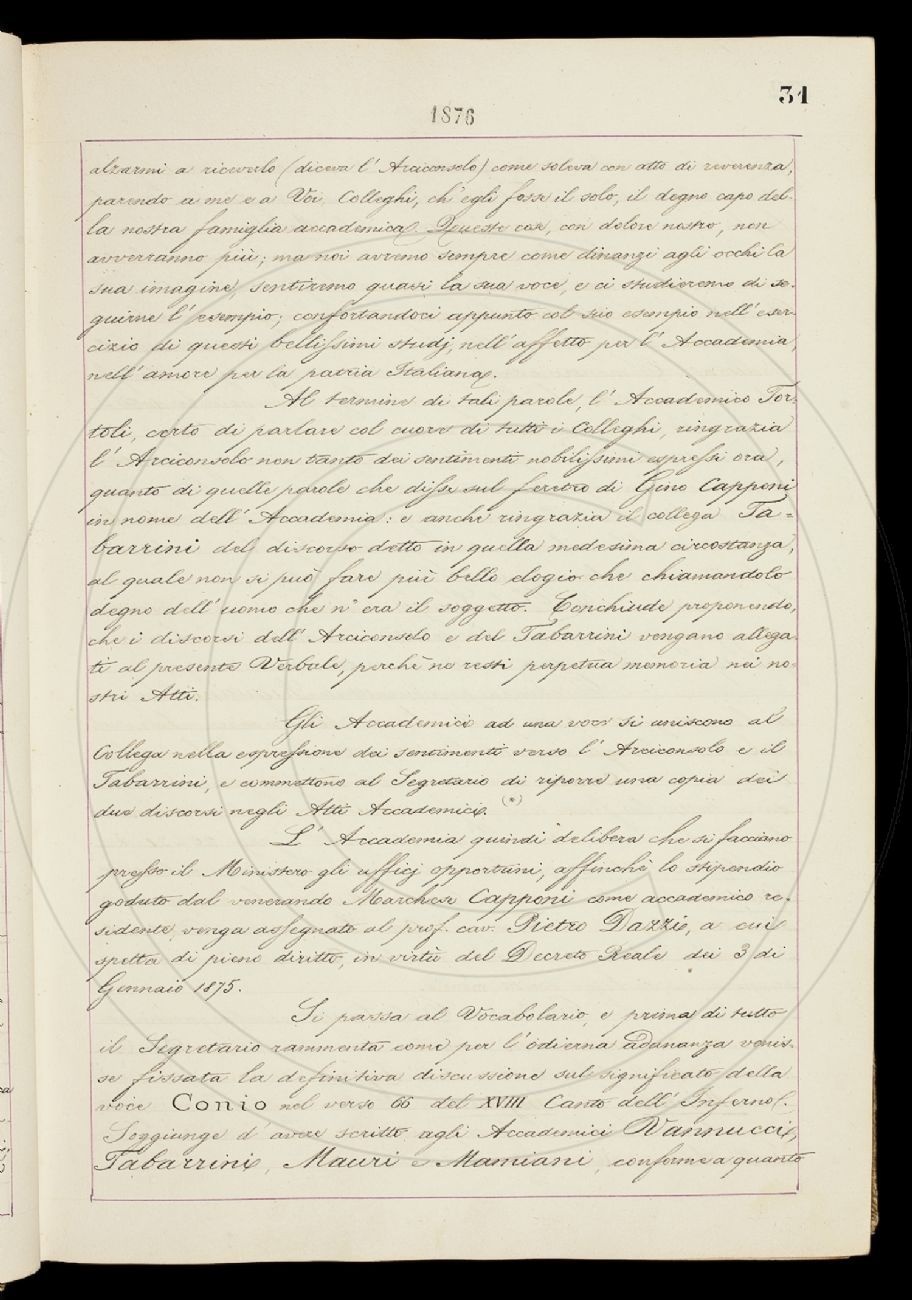 31
1876
alzarmi a riceverlo (diceva l' Arciconsolo) come soleva con atto di reverenza,
parendo a me e a Voi, Colleghi, ch' egli fosse il solo, il degno capo del-
la nostra famiglia accademica. Queste cose, con dolore nostro, non
avverranno più; ma noi avremo sempre come dinanzi agli occhi la
sua imagine, sentiremo quasi la sua voce, e ci studieremo di se-
guirne l' esempio; confortandoci appunto col suo esempio nell' eser-
cizio di questi bellissimi studj, nell' affetto per l' Accademia,
nell' amore per la patria Italiana.
Al termine di tali parole, l' Accademico Tor-
toli, certo di parlare col cuore di tutti i Colleghi, ringrazia
l' Arciconsolo non tanto dei sentimenti nobilissimi espressi ora,
quanto di quelle parole che disse sul feretro di Gino Capponi
in nome dell' Accademia: e anche ringrazia il collega Ta-
barrini del discorso detto in quella medesima circostanza,
al quale non si può fare più bello elogio che chiamandolo
degno dell' uomo che n' era il soggetto. Conchiude proponendo,
che i discorsi dell' Arciconsolo e del Tabarrini vengano allega-
ti al presente Verbale, perchè ne resti perpetua memoria nei no-
stri Atti.
Gli Accademici ad una voce si uniscono al
Collega nella espressione dei sentimenti verso l' Arciconsolo e il
Tabarrini, e commettono al Segretario di riporre una copia dei
due discorsi negli Atti Accademici. (*)
L' Accademia quindi delibera che si facciano
presso il Ministero gli ufficj opportuni, affinchè lo stipendio
goduto dal venerando Marchese Capponi come accademico re-
sidente, venga assegnato al prof. cav. Pietro Dazzi, a cui
spetta di pieno diritto, in virtù del Decreto Reale dei 3 di
Gennaio 1875.
Si passa al Vocabolario, e prima di tutto
il Segretario rammenta come per l' odierna adunanza venis-
se fissata la definitiva discussione sul significato della
voce Conio nel verso 66 del XVIII Canto dell' Inferno.
Soggiunge d' avere scritto agli Accademici Vannucci,
Tabarrini, Mauri e Mamiani, conforme a quanto